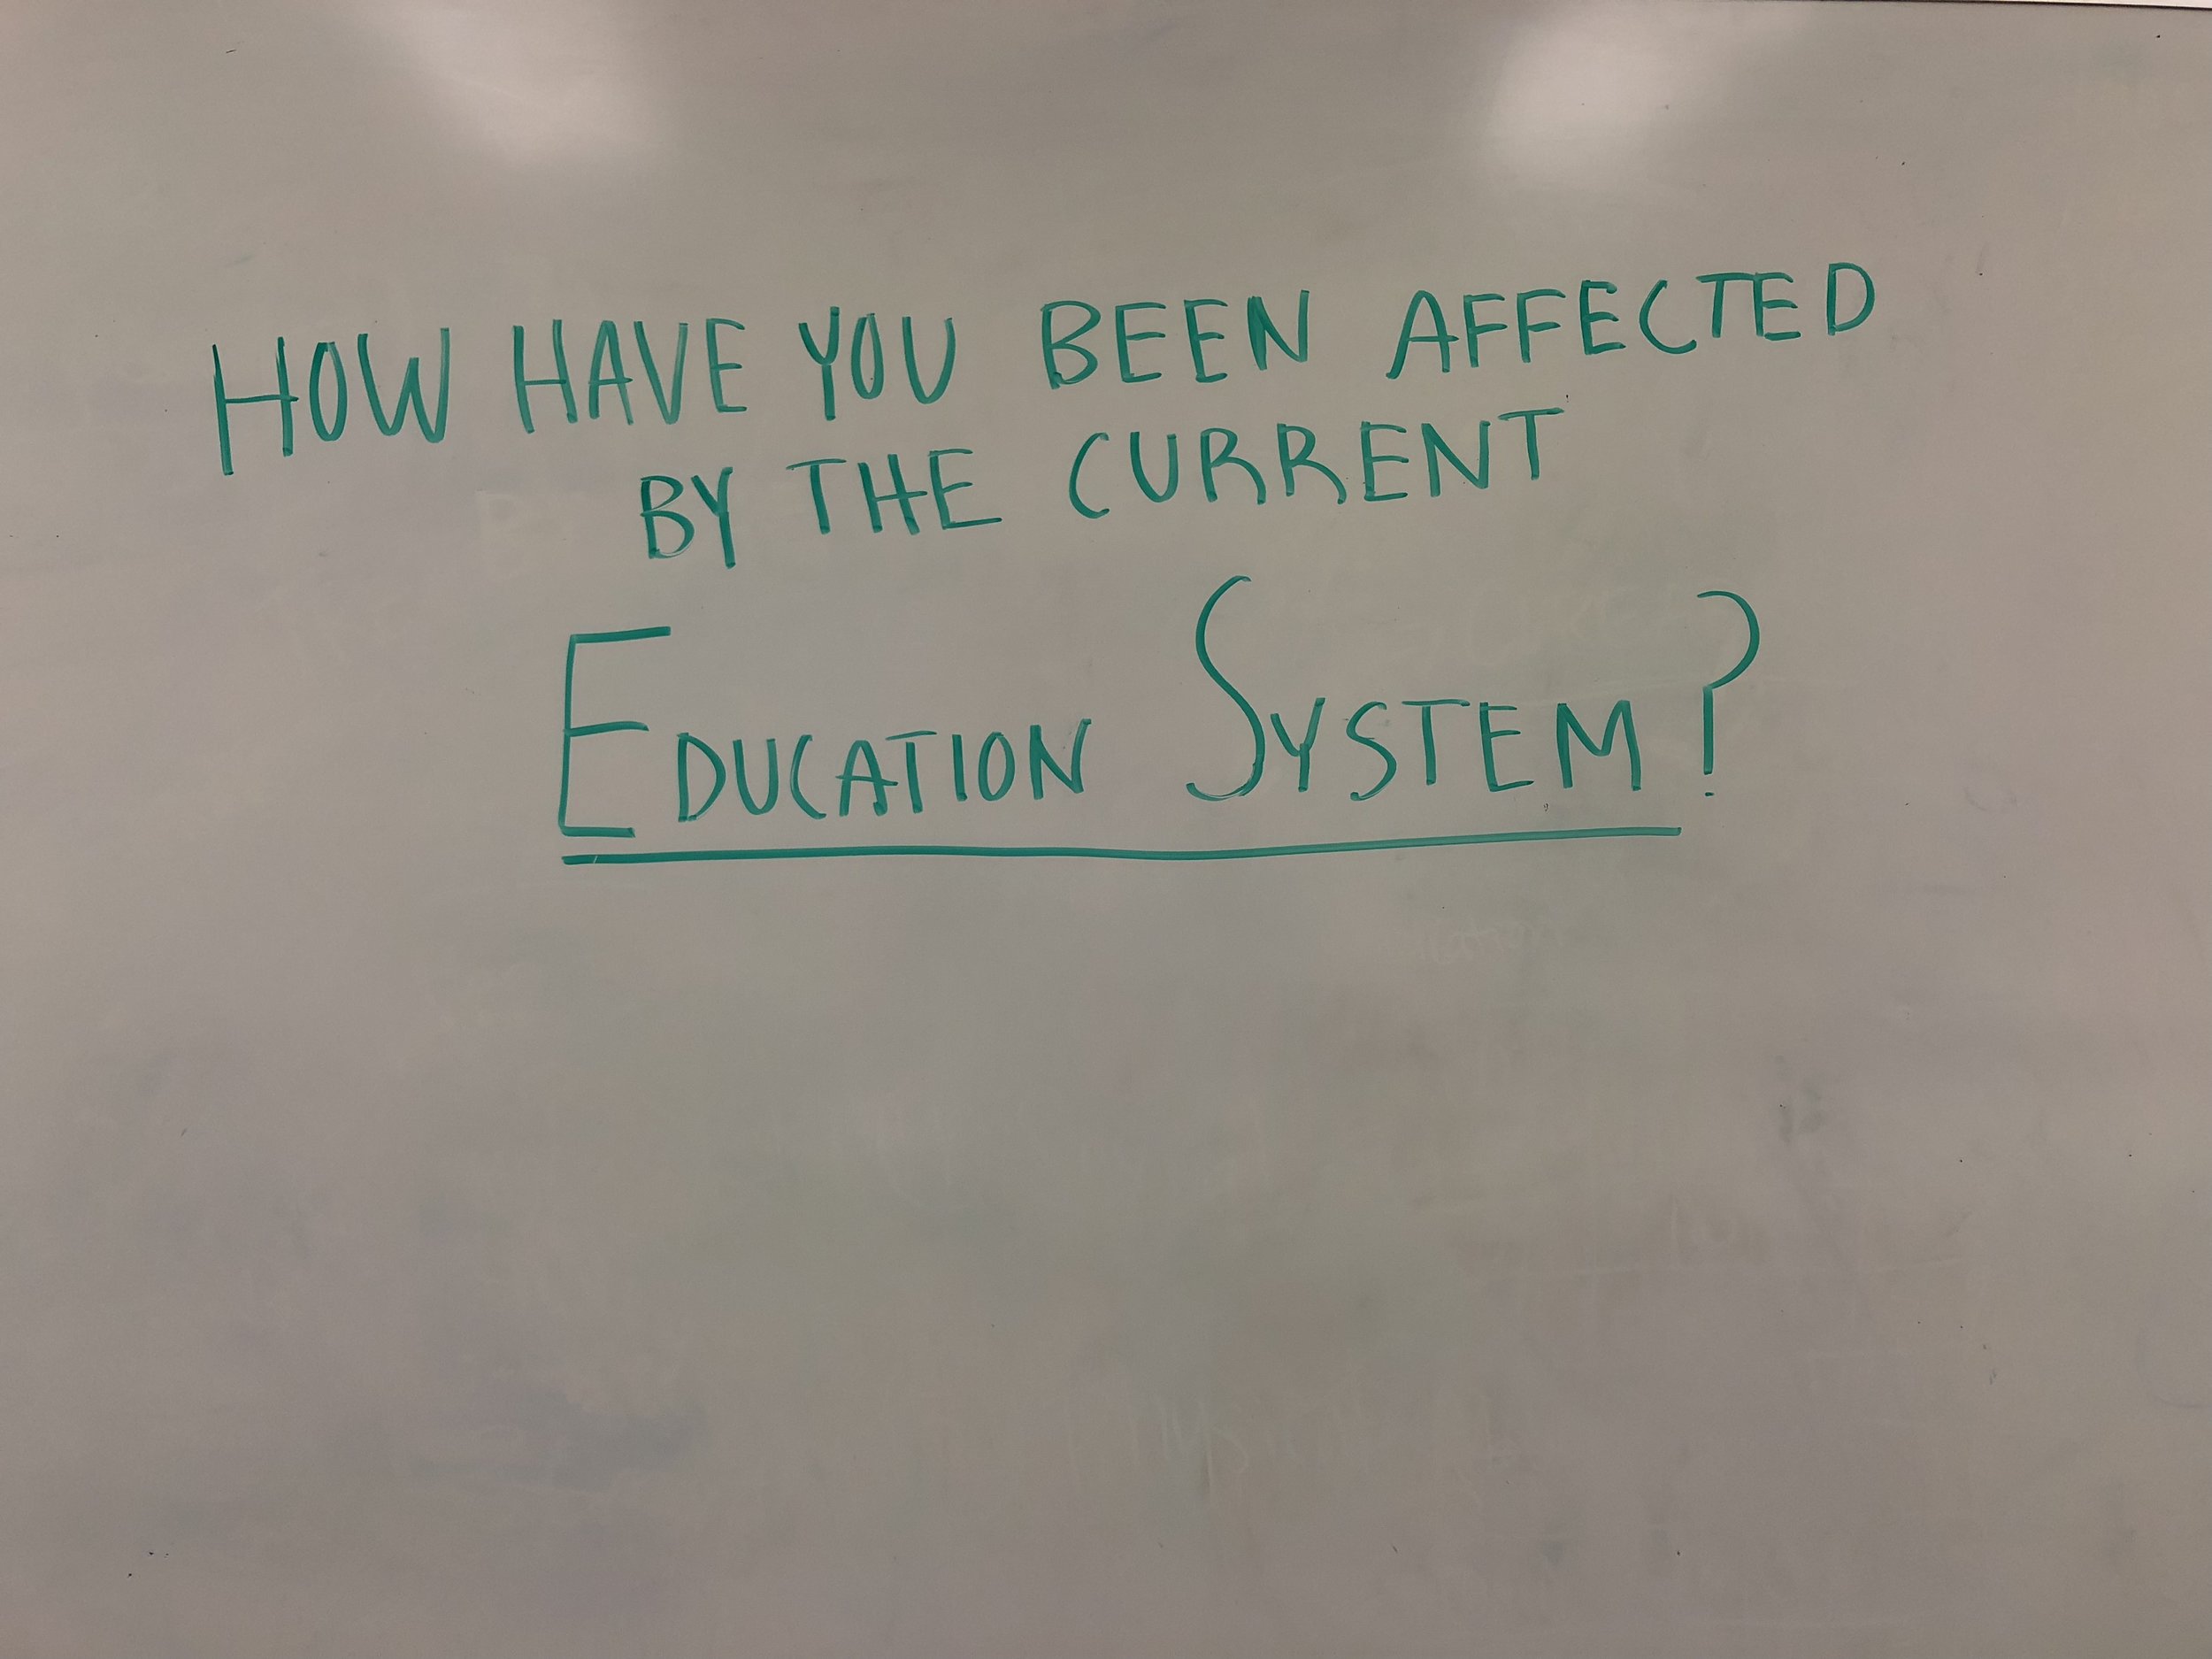 HOW HAVE YOU BEEN AFFECTED
BY THE CURRENT
EDUCATION SYSTEM?